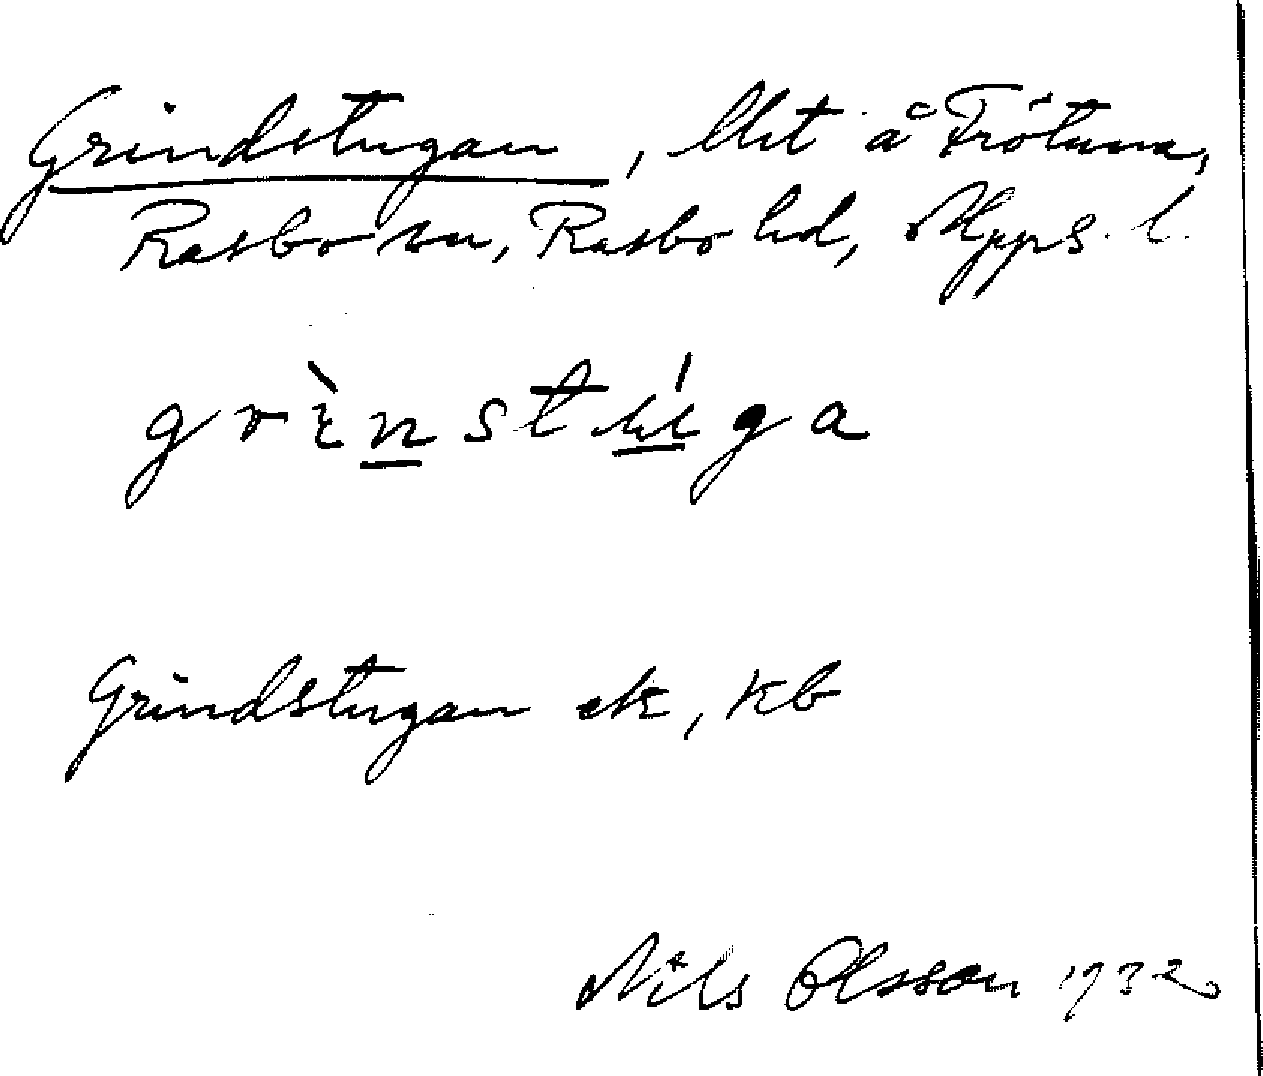 Grindstugan, lht å Frötuna,
Rasbo sn, Rasbo hd, Upps. l.
grìnstúga
Grindstugan ek, Kb
Nils Olsson 1932